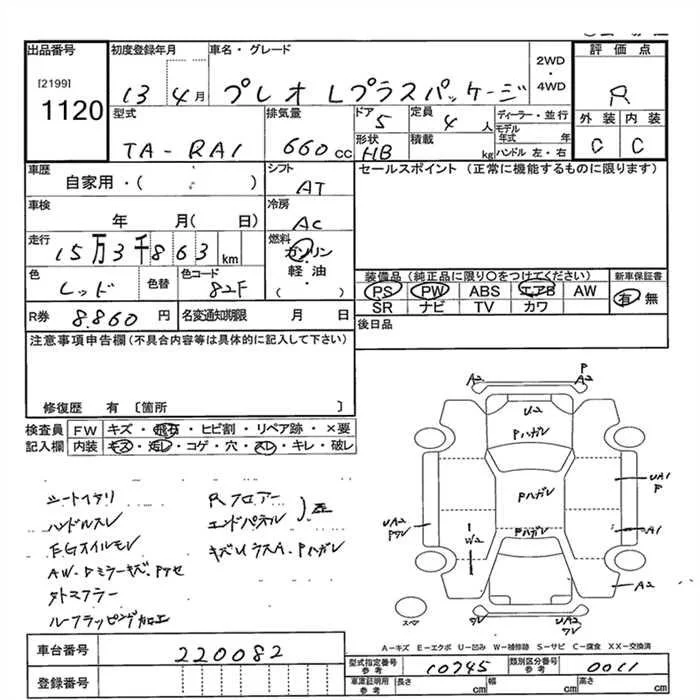 出品番号
[2199]
1120
初度登録年月
13 4月
車名・グレード
プレオ Lプラスパッケージ
2WD
・
4WD
評価点
R
外装 内装
C C
型式
TA-RA1
排気量
660 cc
ドア
5
定員
4 人
形状
HB
積載
kg
ディーラー・並行
モデル
年式 年
ハンドル 左・右
車歴
自家用・( )
シフト
AT
セールスポイント(正常に機能するものに限ります)
車検
年 月( 日)
冷房
AC
走行
15万3千863 km
燃料
ガソリン
軽油
( )
色
レッド
色替
色コード
82F
装備品(純正品に限り○をつけてください)
PS PW ABS エアB AW
SR ナビ TV カワ
新車保証書
有 無
R券 8.860 円
名変通知期限 月 日
後日品
注意事項申告欄(不具合内容等は具体的に記入して下さい)
修復歴 有 〔箇所 〕
検査員
記入欄
FW キズ・飛石・ヒビ割・リペア跡・×要
内装 キズ・汚レ・コゲ・穴・スレ・キレ・破レ
シートヘタリ
ハンドルスレ
EGオイルモレ
AW・Dミラーキズ・Pアセ
タトスフラー
ルーフラッピング加工
Rフロアー
エンドパネル
キズUラスA・Pハガレ
A2
P
A2
U2
Pハガレ
Pハガレ
Pハガレ
UA1
P
A1
UA2
W2
A2
UA2
スペア
A-キズ E-エクボ U-凹み W-補修跡 S-サビ C-腐食 XX-交換済
車台番号 220082
登録番号
型式指定番号
参考
10745
類別区分番号
参考
0011
車庫証明用
参考
長さ cm
幅 cm
高さ cm